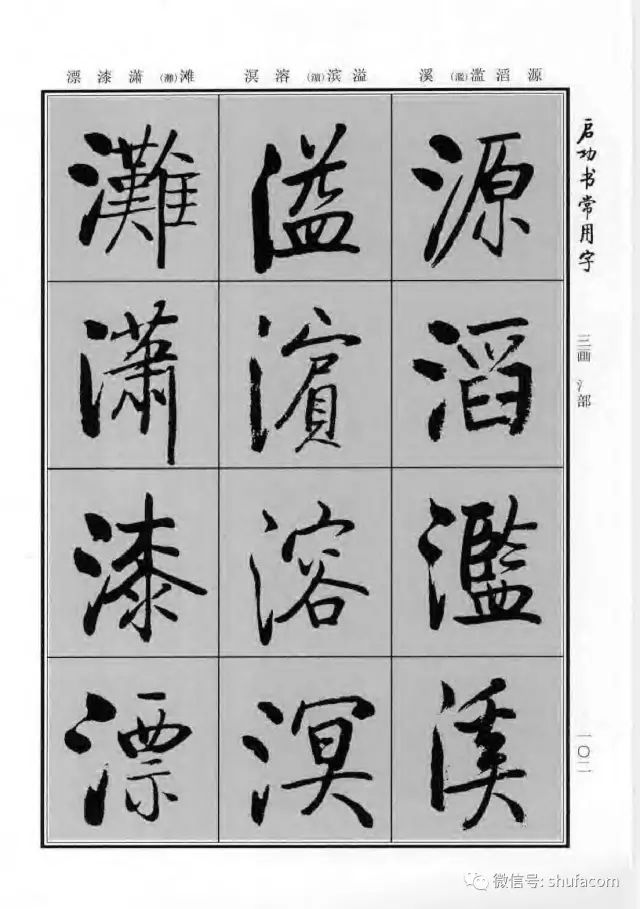 启功书常用字
三画 氵部
一〇二
源 滔 滥(濫) 溪
溢 滨(濱) 溶 溟
滩(灘) 潇 漆 漂
源
滔
濫
溪
溢
濱
溶
溟
灘
瀟
漆
漂
微信号: shufacom